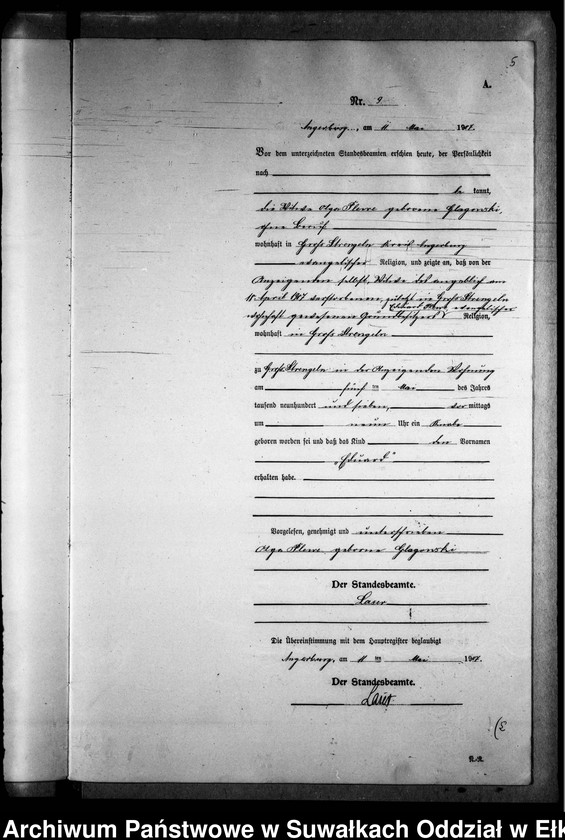 5
A.
Nr. 9
Angerburg, am 11 Mai 1907.
Vor dem unterzeichneten Standesbeamten erschien heute, der Persönlichkeit
nach
be kannt,
die Witwe Olga geborene Glagowski,
ohne Beruf
wohnhaft in Groß Strengeln Kreis Angerburg
evangelischer Religion, und zeigte an, daß von der
Anzeigenden selbst, Witwe des angeblich am
April 1907 verstorbenen, zuletzt in Groß Strengeln
wohnhaft gewesenen Grundbesitzers Eduard evangelischer Religion,
wohnhaft in Groß Strengeln
zu Groß Strengeln in der Anzeigenden Wohnung
am fünf ten Mai des Jahres
tausend neunhundert und sieben, vor mittags
um neun Uhr ein Knabe
geboren worden sei und daß das Kind den Vornamen
„Eduard“
erhalten habe.
Vorgelesen, genehmigt und unterschrieben
Olga geborene Glagowski
Der Standesbeamte.
Die Übereinstimmung mit dem Hauptregister beglaubigt
Angerburg, am 11 ten Mai 1907.
Der Standesbeamte.
Archiwum Państwowe w Suwałkach Oddział w Ełk